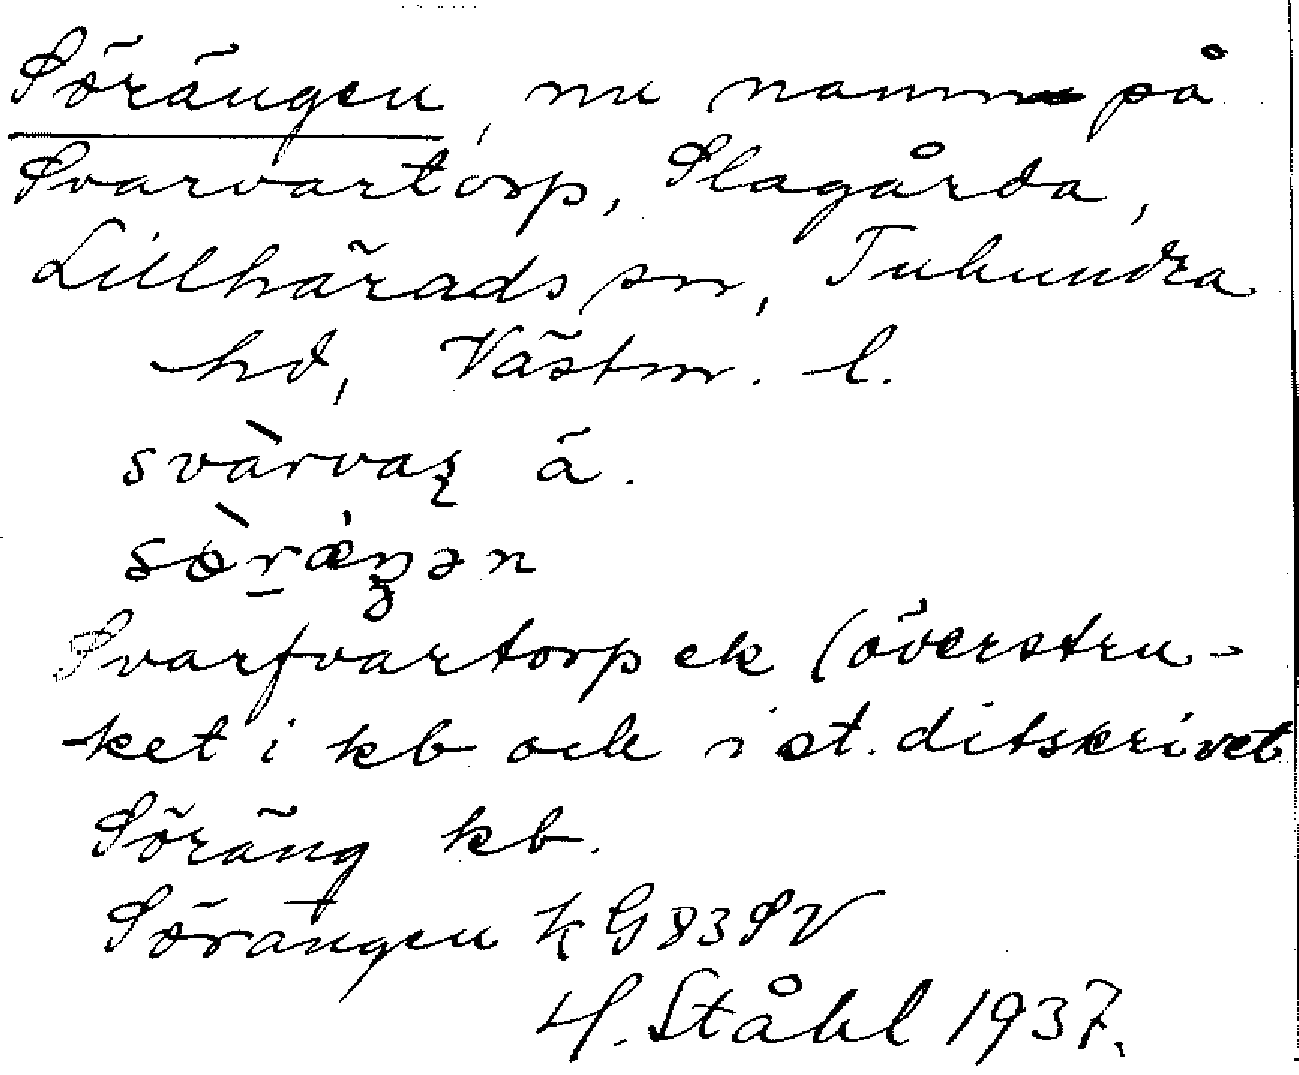 Sörängen, nu namn på
Svarvartorp, Slagårda,
Lillhärads sn, Tuhundra
hd, Västm. l.
svàrvaʂ ä.
sœ̀ræ̇ŋən
Svarfvartorp ek (överstru-
ket i kb och i st. ditskrivet
Söräng kb.
Sörängen k G83SV
H. Ståhl 1937.